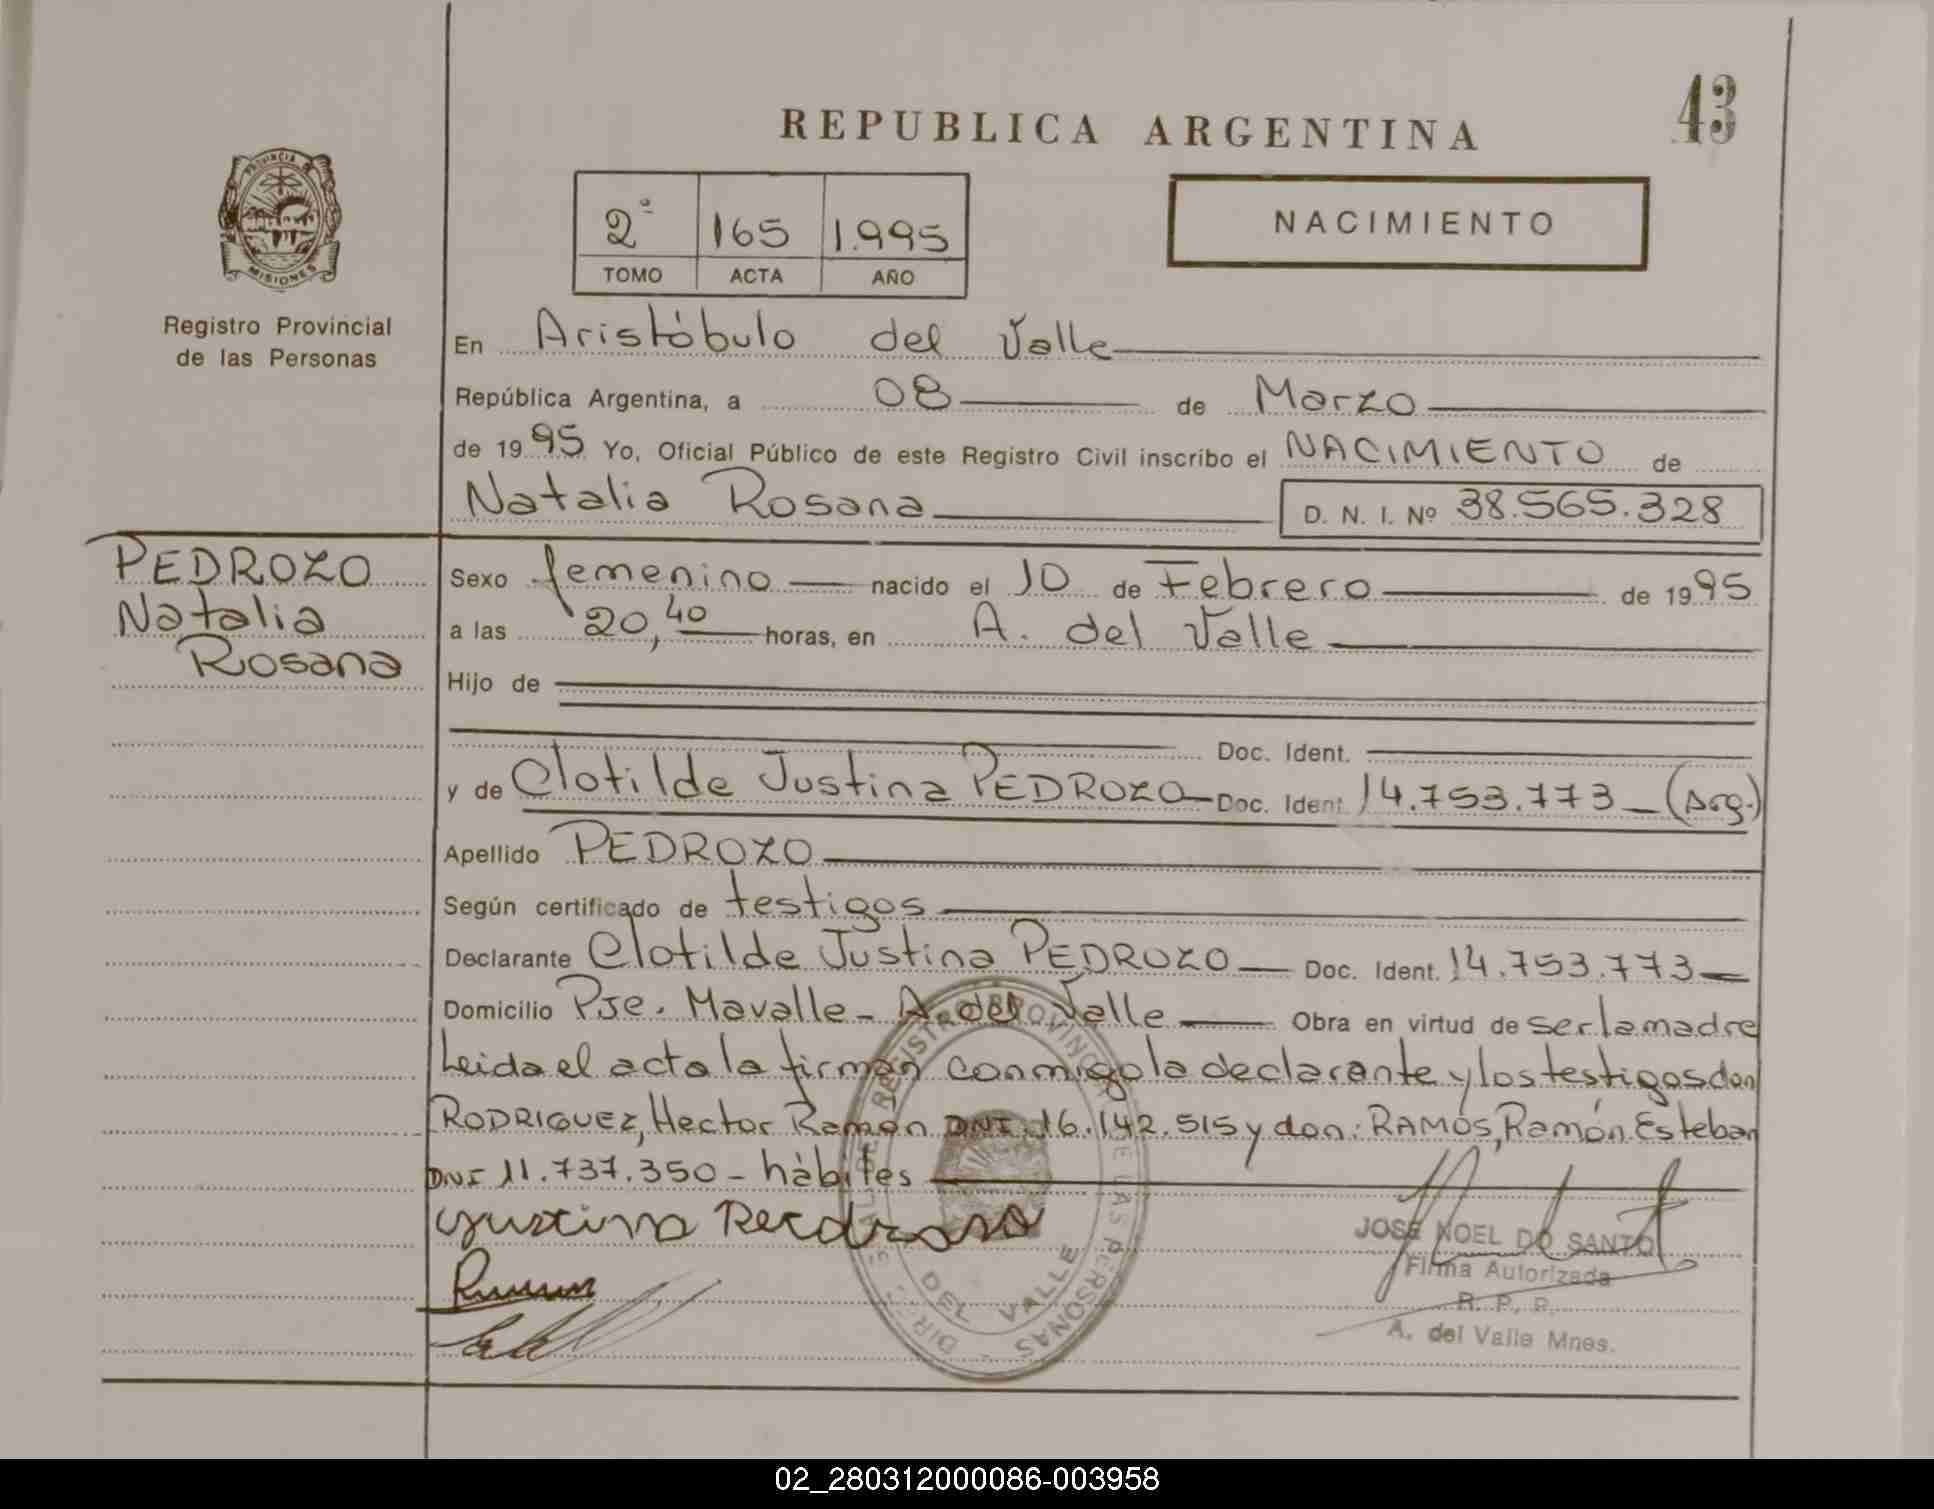 43
REPUBLICA ARGENTINA
NACIMIENTO
2º 165 1.995
TOMO ACTA AÑO
PROVINCIA DE
MISIONES
Registro Provincial
de las Personas
En Aristóbulo del Valle
República Argentina, a 08 de Marzo
de 1995 Yo, Oficial Público de este Registro Civil inscribo el NACIMIENTO de
Natalia Rosana D. N. I. Nº 38.565.328
PEDROZO
Natalia
Rosana
Sexo femenino nacido el 10 de Febrero de 1995
a las 20,40 horas, en A. del Valle
Hijo de
Doc. Ident.
y de Clotilde Justina PEDROZO Doc. Ident. 14.753.773 (Arg.)
Apellido PEDROZO
Según certificado de testigos
Declarante Clotilde Justina PEDROZO Doc. Ident. 14.753.773
Domicilio Pje. Mavalle - A. del Valle Obra en virtud de ser la madre
Leida el acta la firman conmigo la declarante y los testigos don
RODRIGUEZ, Hector Ramón DNI 16.142.515 y don: RAMOS, Ramón Esteban
DNI 11.737.350 - hàbiles
Justina Perdroso
JOSE NOEL DO SANTO
Firma Autorizada
R. P. P.
A. del Valle Mnes.
REGISTRO PROVINCIAL DE LAS PERSONAS
DEL VALLE
02_280312000086-003958